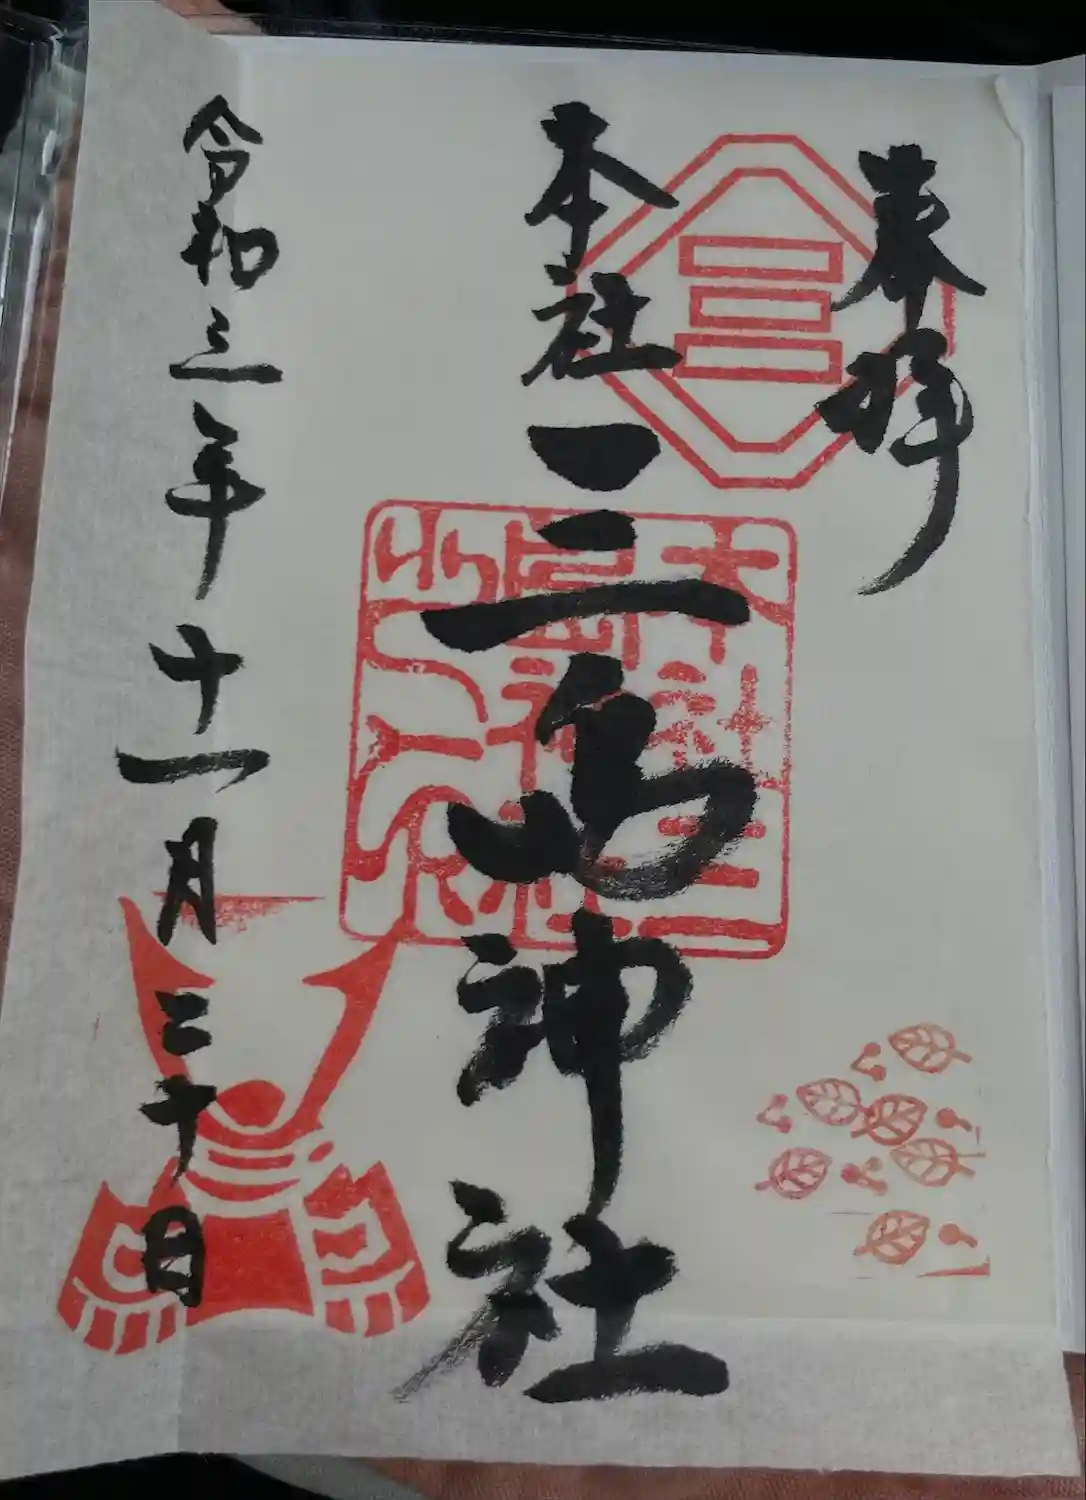 奉拝
本社三島神社
令和三年十一月三十日